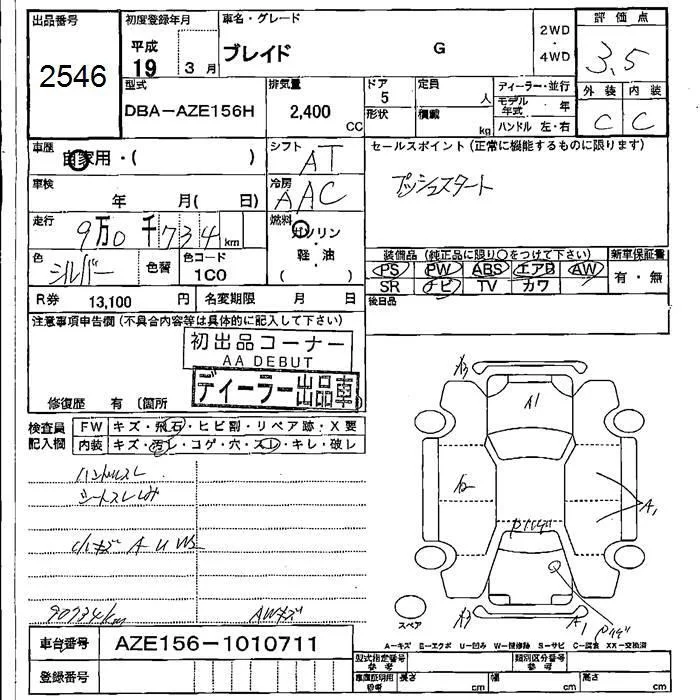 出品番号 初度登録年月 車名・グレード 2WD・4WD 評価点
2546 平成 19 3月 ブレイド G 3.5
型式 排気量 ドア 定員 ディーラー・並行 外装 内装
DBA-AZE156H 2,400 CC 5 人 モデル年式 年 C C
形状 積載 kg ハンドル 左・右
車歴 自家用・( ) シフト AT セールスポイント(正常に機能するものに限ります)
車検 年 月( 日) 冷房 AAC プッシュスタート
走行 9万0千734km 燃料 ガソリン・軽油( )
色 シルバー 色替 色コード 1C0
装備品(純正品に限り○をつけて下さい) 新車保証書
PS PW ABS エアB AW 有・無
SR ナビ TV カワ
R券 13,100 円 名変期限 月 日 後日品
注意事項申告欄(不具合内容等は具体的に記入して下さい)
初出品コーナー
AA DEBUT
ディーラー出品車
修復歴 有 (箇所
検査員記入欄 FW キズ・飛石・ヒビ割・リペア跡・X要
内装 キズ・汚れ・コゲ・穴・スレ・キレ・破レ
ハンドルスレ
シートスレしみ
小キズ A U W2
90734km AWキズ
A1
A2
A1
A1
スペア
A-キズ E-エクボ U-凹み W-補修跡 S-サビ C-腐食 XX-交換済
車台番号 AZE156-1010711
型式指定番号 参考 類別区分番号 参考
登録番号 車庫証明用 参考 長さ cm 幅 cm 高さ cm